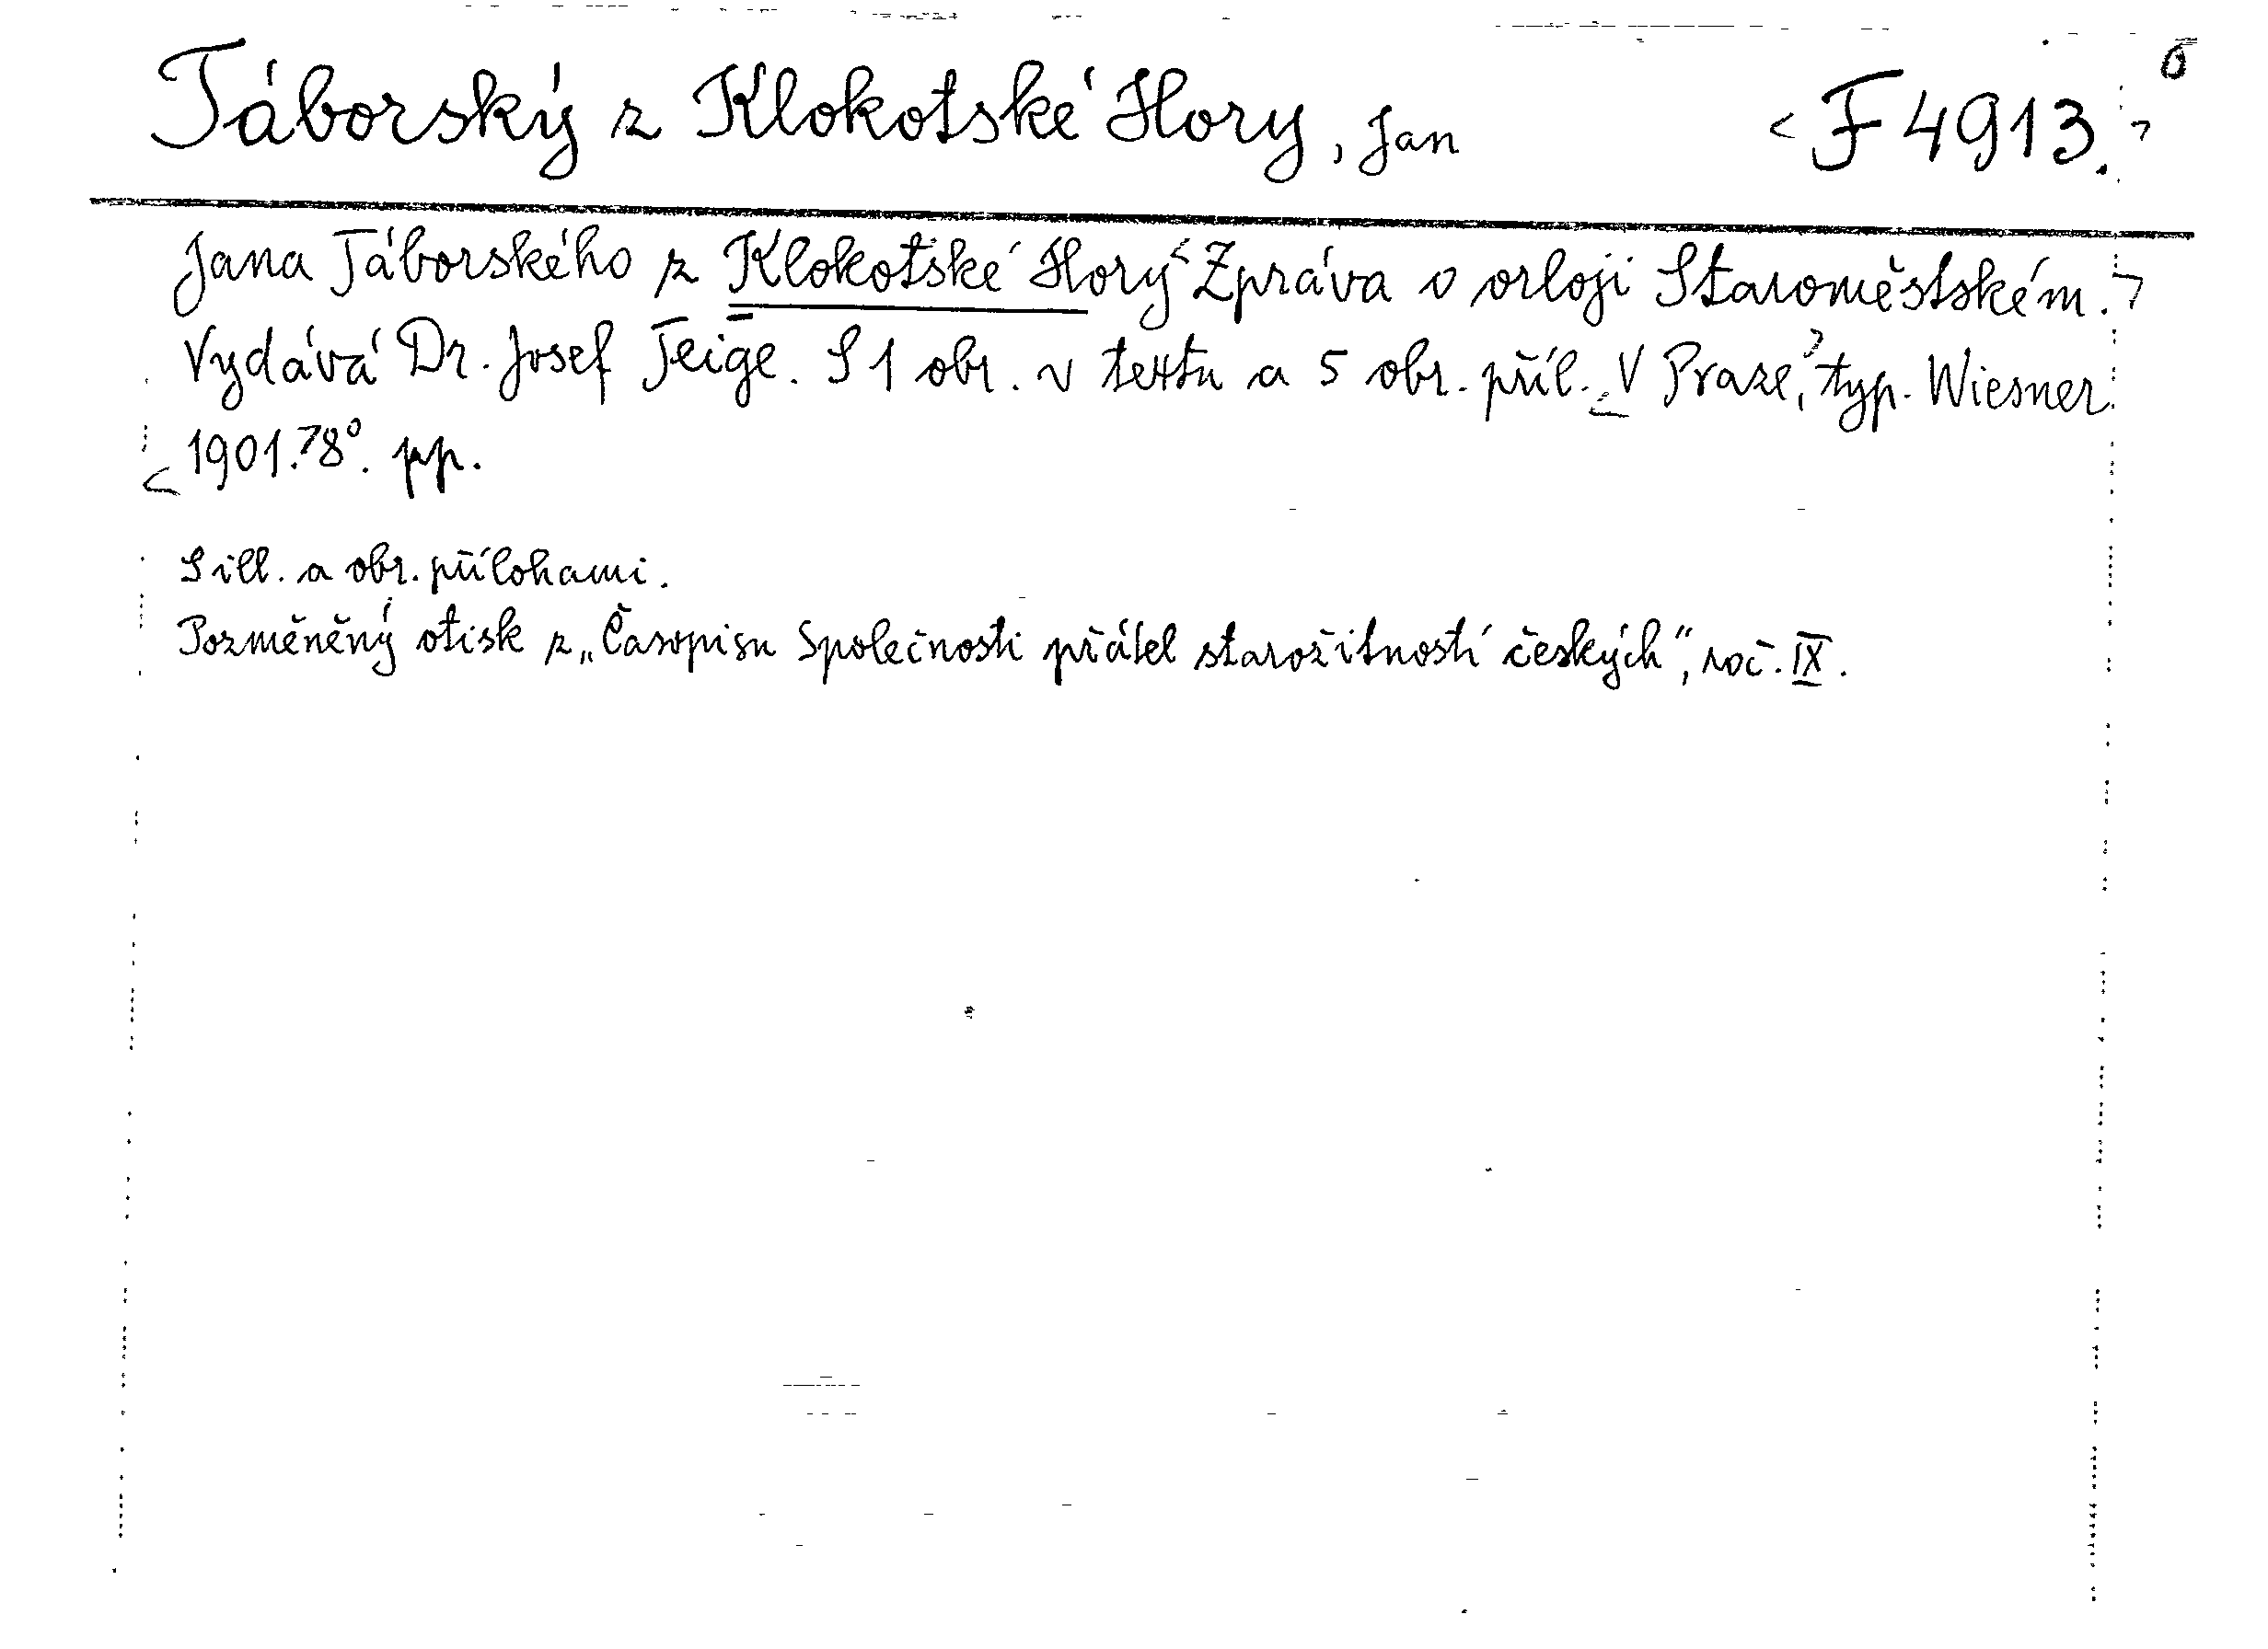 Táborský z Klokotské Hory, Jan <F 4913.> 6
Jana Táborského z Klokotské Hory <Zpráva o orloji Staroměstském.>
Vydává Dr. Josef Teige. S 1 obr. v textu a 5 obr. příl. <V Praze,> typ. Wiesner
<1901.> 8°. pp.
S ill. a obr. přílohami.
Pozměněný otisk z „Časopisu Společnosti přátel starožitností českých“, roč. IX.